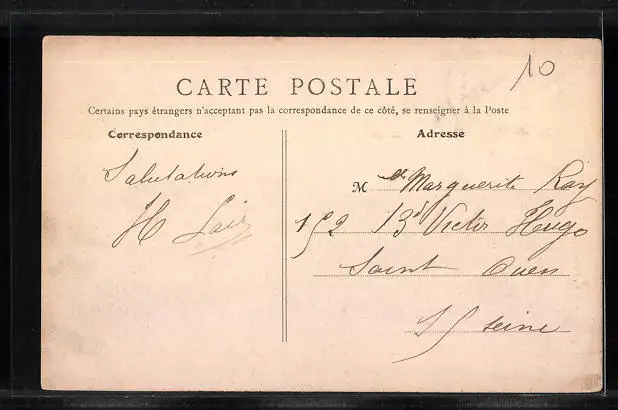 10
CARTE POSTALE
Certains pays étrangers n'acceptant pas la correspondance de ce côté, se renseigner à la Poste
Correspondance
Adresse
Salutations
H Lair
M lle Marguerite Ray
152 Bd Victor Hugo
Saint Ouen
S/ seine